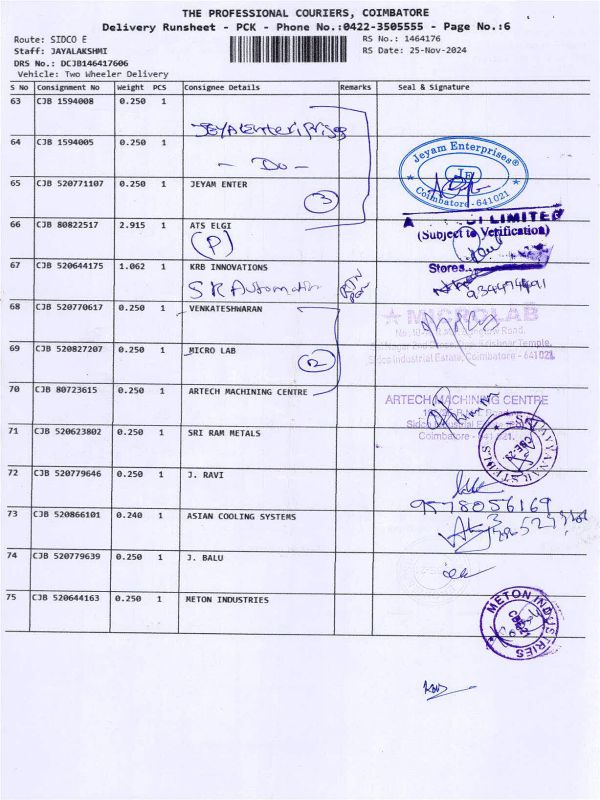 THE PROFESSIONAL COURIERS, COIMBATORE
Delivery Runsheet - PCK - Phone No.:0422-3505555 - Page No.:6
Route: SIDCO E
RS No.: 1464176
Staff: JAYALAKSHMI
RS Date: 25-Nov-2024
DRS No.: DCJB146417606
Vehicle: Two Wheeler Delivery
S No Consignment No Weight PCS Consignee Details Remarks Seal & Signature
63 CJB 1594008 0.250 1
Jeya Enterprises
64 CJB 1594005 0.250 1
- Do -
Jeyam Enterprises®
JE
Coimbatore - 641021
65 CJB 520771107 0.250 1 JEYAM ENTER
3
66 CJB 80822517 2.915 1 ATS ELGI
LIMITED
(P)
(Subject to Verification)
Stores
67 CJB 520644175 1.062 1 KRB INNOVATIONS
SR Automation
68 CJB 520770617 0.250 1 VENKATESHWARAN
MICROLAB
69 CJB 520827207 0.250 1 MICRO LAB
Sidco Industrial Estate, Coimbatore - 641 021.
2
70 CJB 80723615 0.250 1 ARTECH MACHINING CENTRE
ARTECH MACHINING CENTRE
Sidco Industrial Estate
Coimbatore - 641 021.
71 CJB 520623802 0.250 1 SRI RAM METALS
72 CJB 520779646 0.250 1 J. RAVI
9578056169
73 CJB 520866101 0.240 1 ASIAN COOLING SYSTEMS
74 CJB 520779639 0.250 1 J. BALU
75 CJB 520644163 0.250 1 METON INDUSTRIES
METON INDUSTRIES